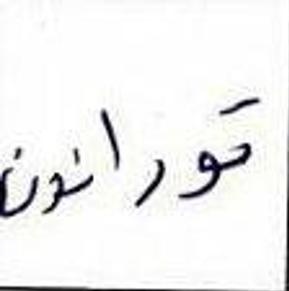 تورانون